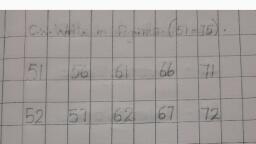 in (51-75).
51 56 61 66 71
52 57 62 67 72